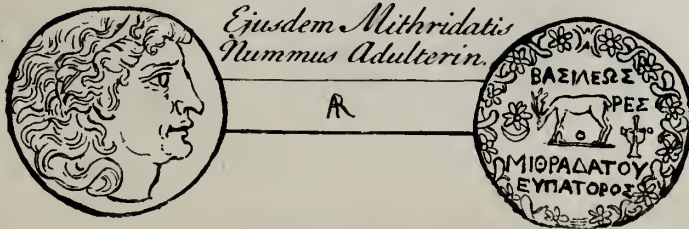 Ejusdem Mithridatis
Nummus Adulterin.
AR
ΒΑΣΙΛΕΩΣ
ΡΕΣ
ΜΙΘΡΑΔΑΤΟΥ
ΕΥΠΑΤΟΡΟΣ